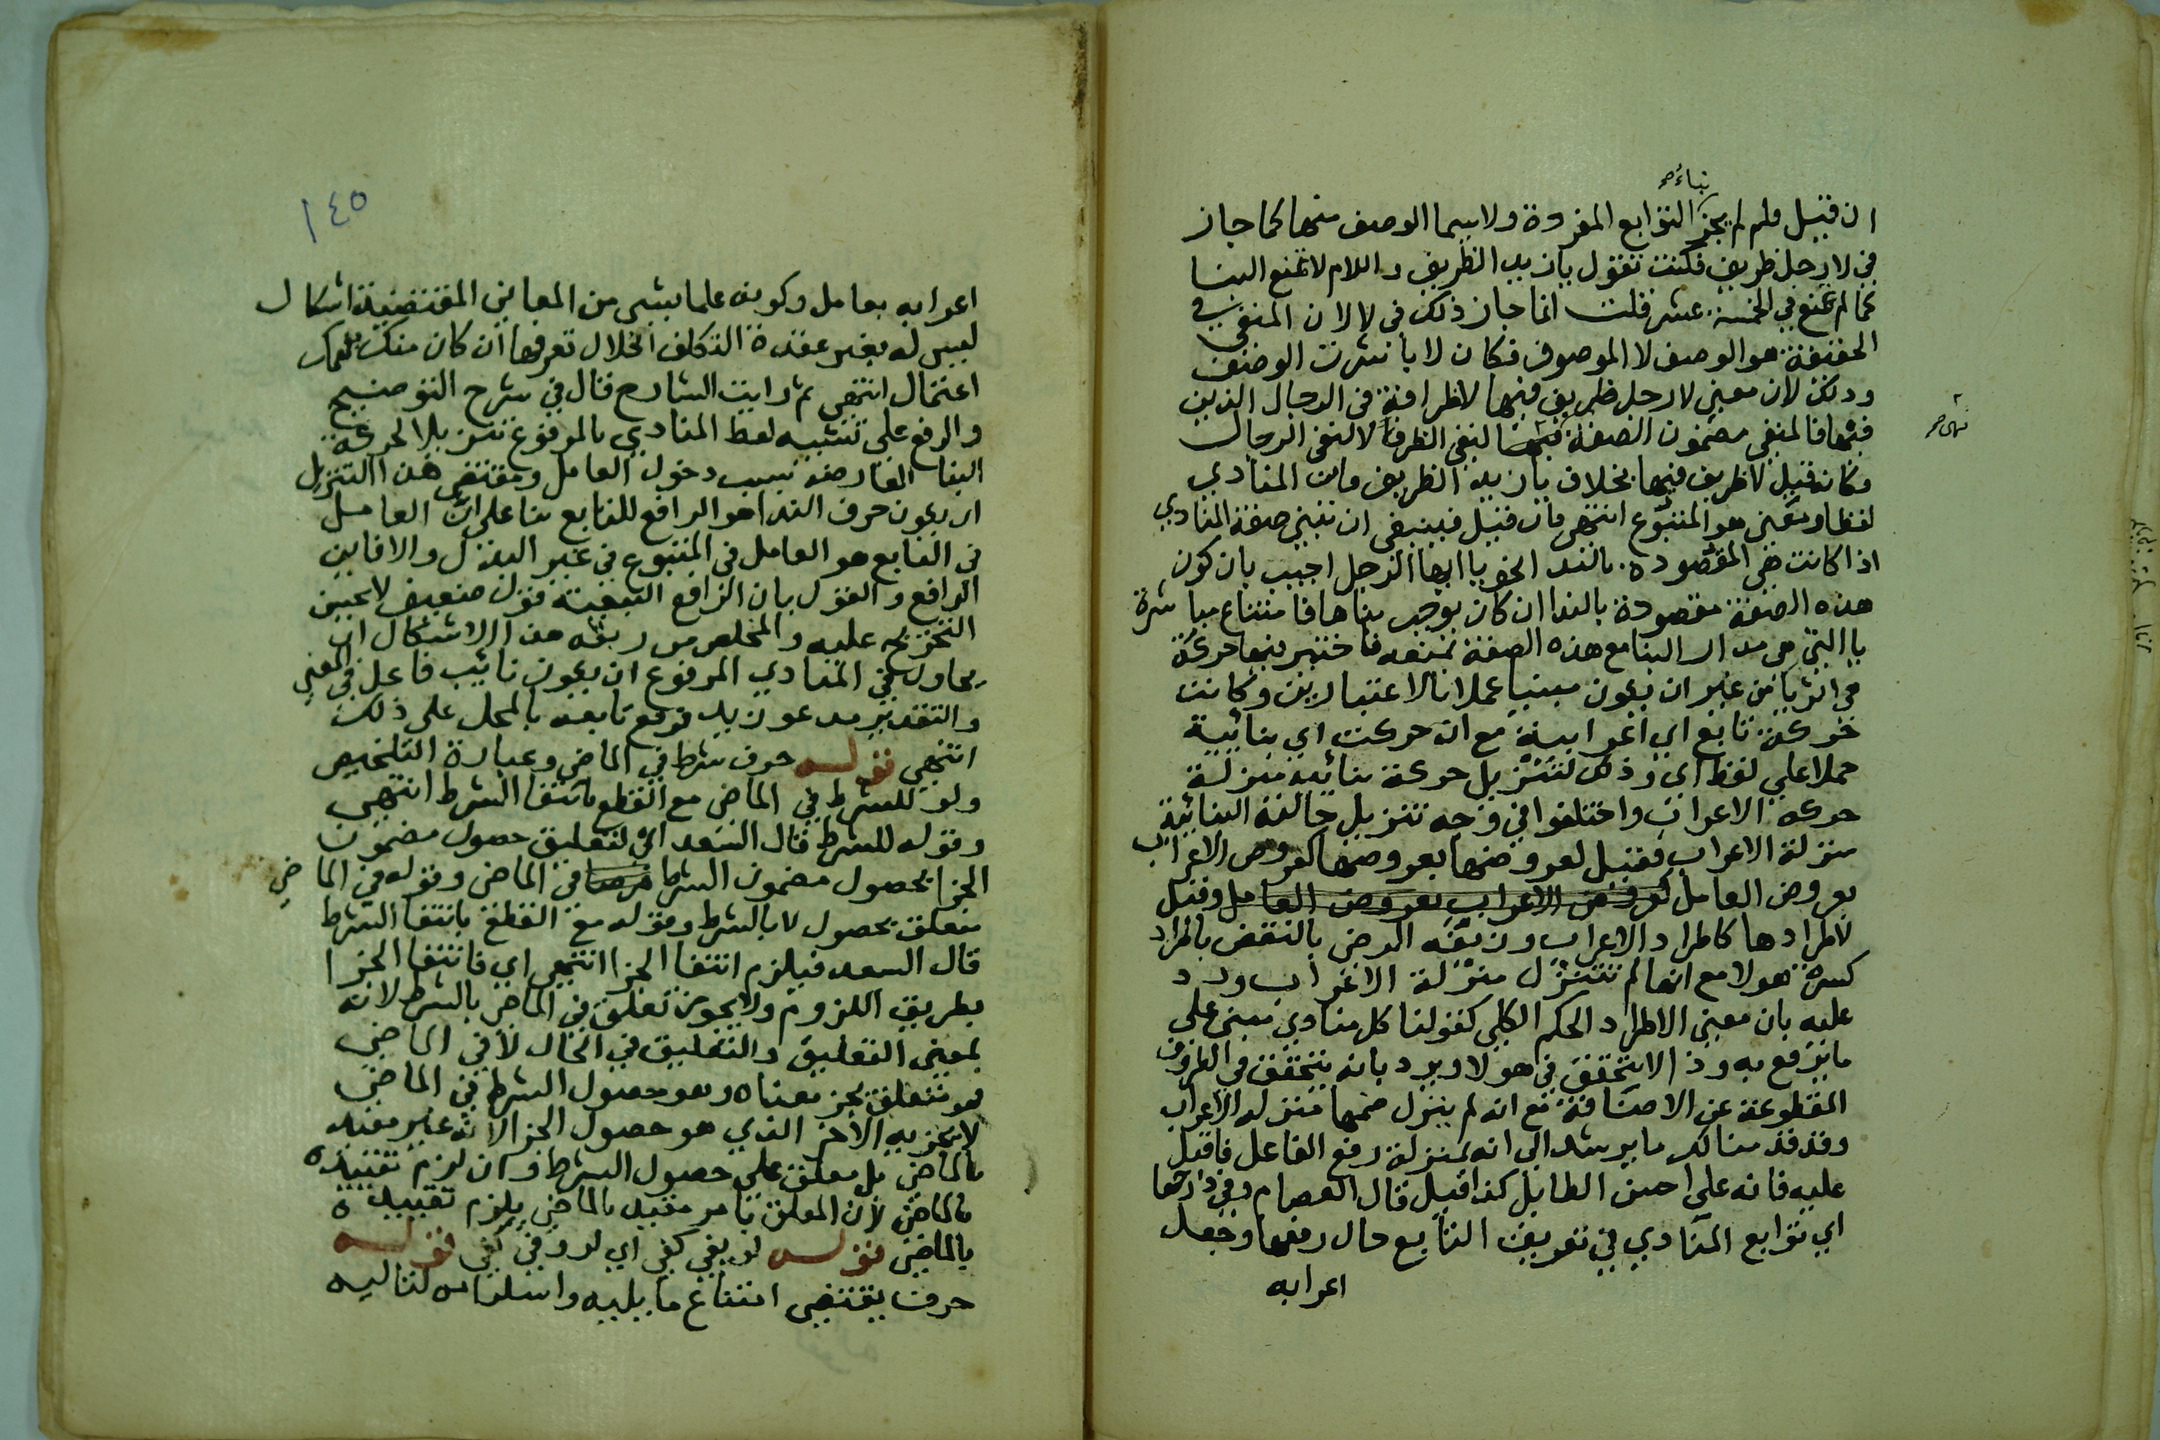 بناء صح
ان قيل فلم لم يجز التوابع المفردة ولاسيما الوصف منها كما جاز
في لا رجل ظريف فكنت تقول يا زيد الظريف واللام لا تمنع البنا
كما لم تمنع في الخمسة عشر قلت انما جاز ذلك في لا لان المنفي في
الحقيقة هو الوصف لا الموصوف فكان لا باشرت الوصف
وذلك لان معنى لا رجل ظريف فيها لا ظرافة في الرجال الذين
فيها فالمنفي مضمون الصفة لنفي الظرفا لا لنفي الرجال
فكانه قيل لا ظريف فيها بخلاف يا زيد الظريف فان المنادي
لفظا ومعني هو المتبوع انتهى فان قيل فينبغي ان تبني صفة المنادي
اذا كانت هي المقصوده بالندا نحو يا ايها الرجل اجيب بان كون
هذه الصفة مقصودة بالندا ان كان يوجب بناها فامتناع مباشرة
يا التي هي مدار البنا مع هذه الصفة يمنعه فاختير فيها حركة
هي اثر يا من غير ان يكون مبنيا عملا بالاعتبارين وكانت
حركة تابع اي اعرابية مع ان حركت اي بنائية
حملا علي لفظ اي وذلك لتنزيل حركة بنائيه منزلة
حركه الاعراب واختلفوا في وجه تنزيل حالته البنائية
منزلة الاعراب فقيل لعروضها بعروضها كعروض الاعراب
بعروض العامل كعروض الاعراب بعروض العامل وقيل
لاطرادها كاطراد الاعراب وزيفه الرضي بالنقض باطراد
كسرة هولا مع انها لم تتنزل منزلة الاعراب ورد
عليه بان معني الاطراد الحكم الكلي كقولنا كل منادي مبني علي
ما يرفع به وذا لا يتحقق في هولا ويرد بانه يتحقق في الظروف
المقطوعة عن الاضافة مع انه لم ينزل ضمها منزله الاعراب
وقد قدمنا لك ما يرشد الى انه بمنزلة رفع الفاعل فاقبل
عليه فانه علي احسن الطايل كذا قيل قال العصام وفي ادراجها
اي توابع المنادي في تعريف التابع حال رفعها وجعل
اعرابه
صح
١٤٥
اعرابه بعامل وكونه علما بشي من المعاني المقتضية اشكال
ليس له بغير عقدة التكلف انحلال تعرفها ان كان منك
اعتمال انتهي ثم رايت الشارح قال في شرح التوضيح
والرفع علي تشبيه لفظ المنادي بالمرفوع تنزيلا لحركة
البنا العارضه بسبب دخول العامل ومقتضى هذا التنزيل
ان يكون حرف الندا هو الرافع للتابع بنا على ان العامل
في التابع هو العامل في المتبوع في غير البدل والا فاين
الرافع والقول بان الرافع التبعية قول ضعيف لا يحسن
التخريج عليه والمخلص من ربقه هذا الاشكال ان
يحاول في المنادي المرفوع ان يكون نائب فاعل في المعني
والتقدير مدعو زيد فرفع تابعه بالحمل على ذلك
انتهي قوله حرف شرط في الماضي وعبارة التلخيص
ولو للشرط في الماضي مع القطع بانتفا الشرط انتهي
وقوله للشرط قال السعد اي لتعليق حصول مضمون
الجزا بحصول مضمون الشرط فرضا في الماضي وقوله في الماضي
متعلق بحصول لا بالشرط وقوله مع القطع بانتفا الشرط
قال السعد فيلزم انتفا الجزا انتهي اي فانتفا الجزا
بطريق اللزوم ولا يجوز تعلق في الماضي بالشرط لانه
بمعني التعليق والتعليق في الحال لا في الماضي
فهو متعلق بجز معناه وهو حصول الشرط في الماضي
لا بجزيه الاخر الذي هو حصول الجزا لانه غير مقيد
بالماضي بل معلق علي حصول الشرط وان لزم تقييده
بالماضي لان المعلق بامر مقيد بالماضي يلزم تقييده
بالماضي قوله لو يفي كفي اي لو وفي كفي قوله
حرف يقتضي امتناع ما يليه واستلزامه لتاليه